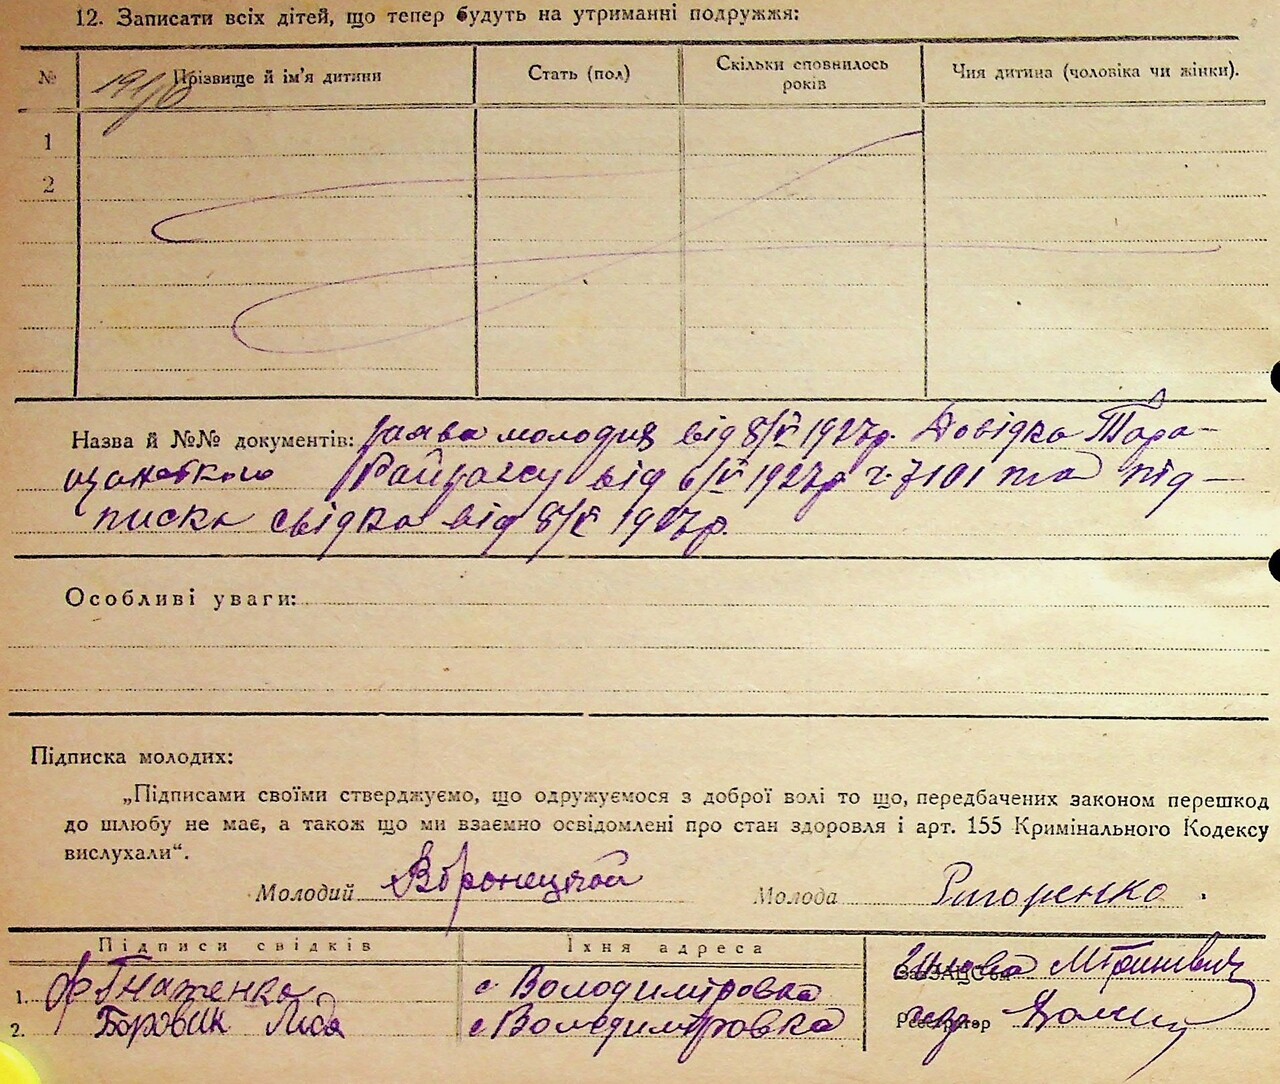 12. Записати всіх дітей, що тепер будуть на утриманні подружжя:
№ Прізвище й ім'я дитини Стать (пол) Скільки сповнилось років Чия дитина (чоловіка чи жінки).
1
2
Назва й №№ документів: заява молодих від 8/V 1927р. Довідка Тара-
щанського Райзагсу від 6/V 1927р ч. 7101 та під-
писка свідка від 8/V 1927р.
Особливі уваги:
Підписка молодих:
„Підписами своїми стверджуємо, що одружуємося з доброї волі то що, передбачених законом перешкод
до шлюбу не має, а також що ми взаємно освідомлені про стан здоровля і арт. 155 Кримінального Кодексу
вислухали“.
Молодий Молода
Підписи свідків Їхня адреса
1. с Володиміровка
2. Боровик Ліда с Володимировка
Реєстратор